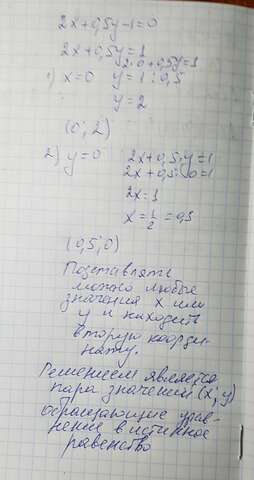 2x+0,5y-1=0
2x+0,5y=1
2·0+0,5y=1
1) x=0 y=1:0,5
y=2
(0; 2)
2) y=0 2x+0,5·y=1
2x+0,5·0=1
2x=1
x=1/2=0,5
(0,5;0)
Подставлять
можно любые
значения x или
y и находить
вторую коорди-
нату.
Решением является
пара значений (x; y)
обращающие урав-
нение в истинное
равенство